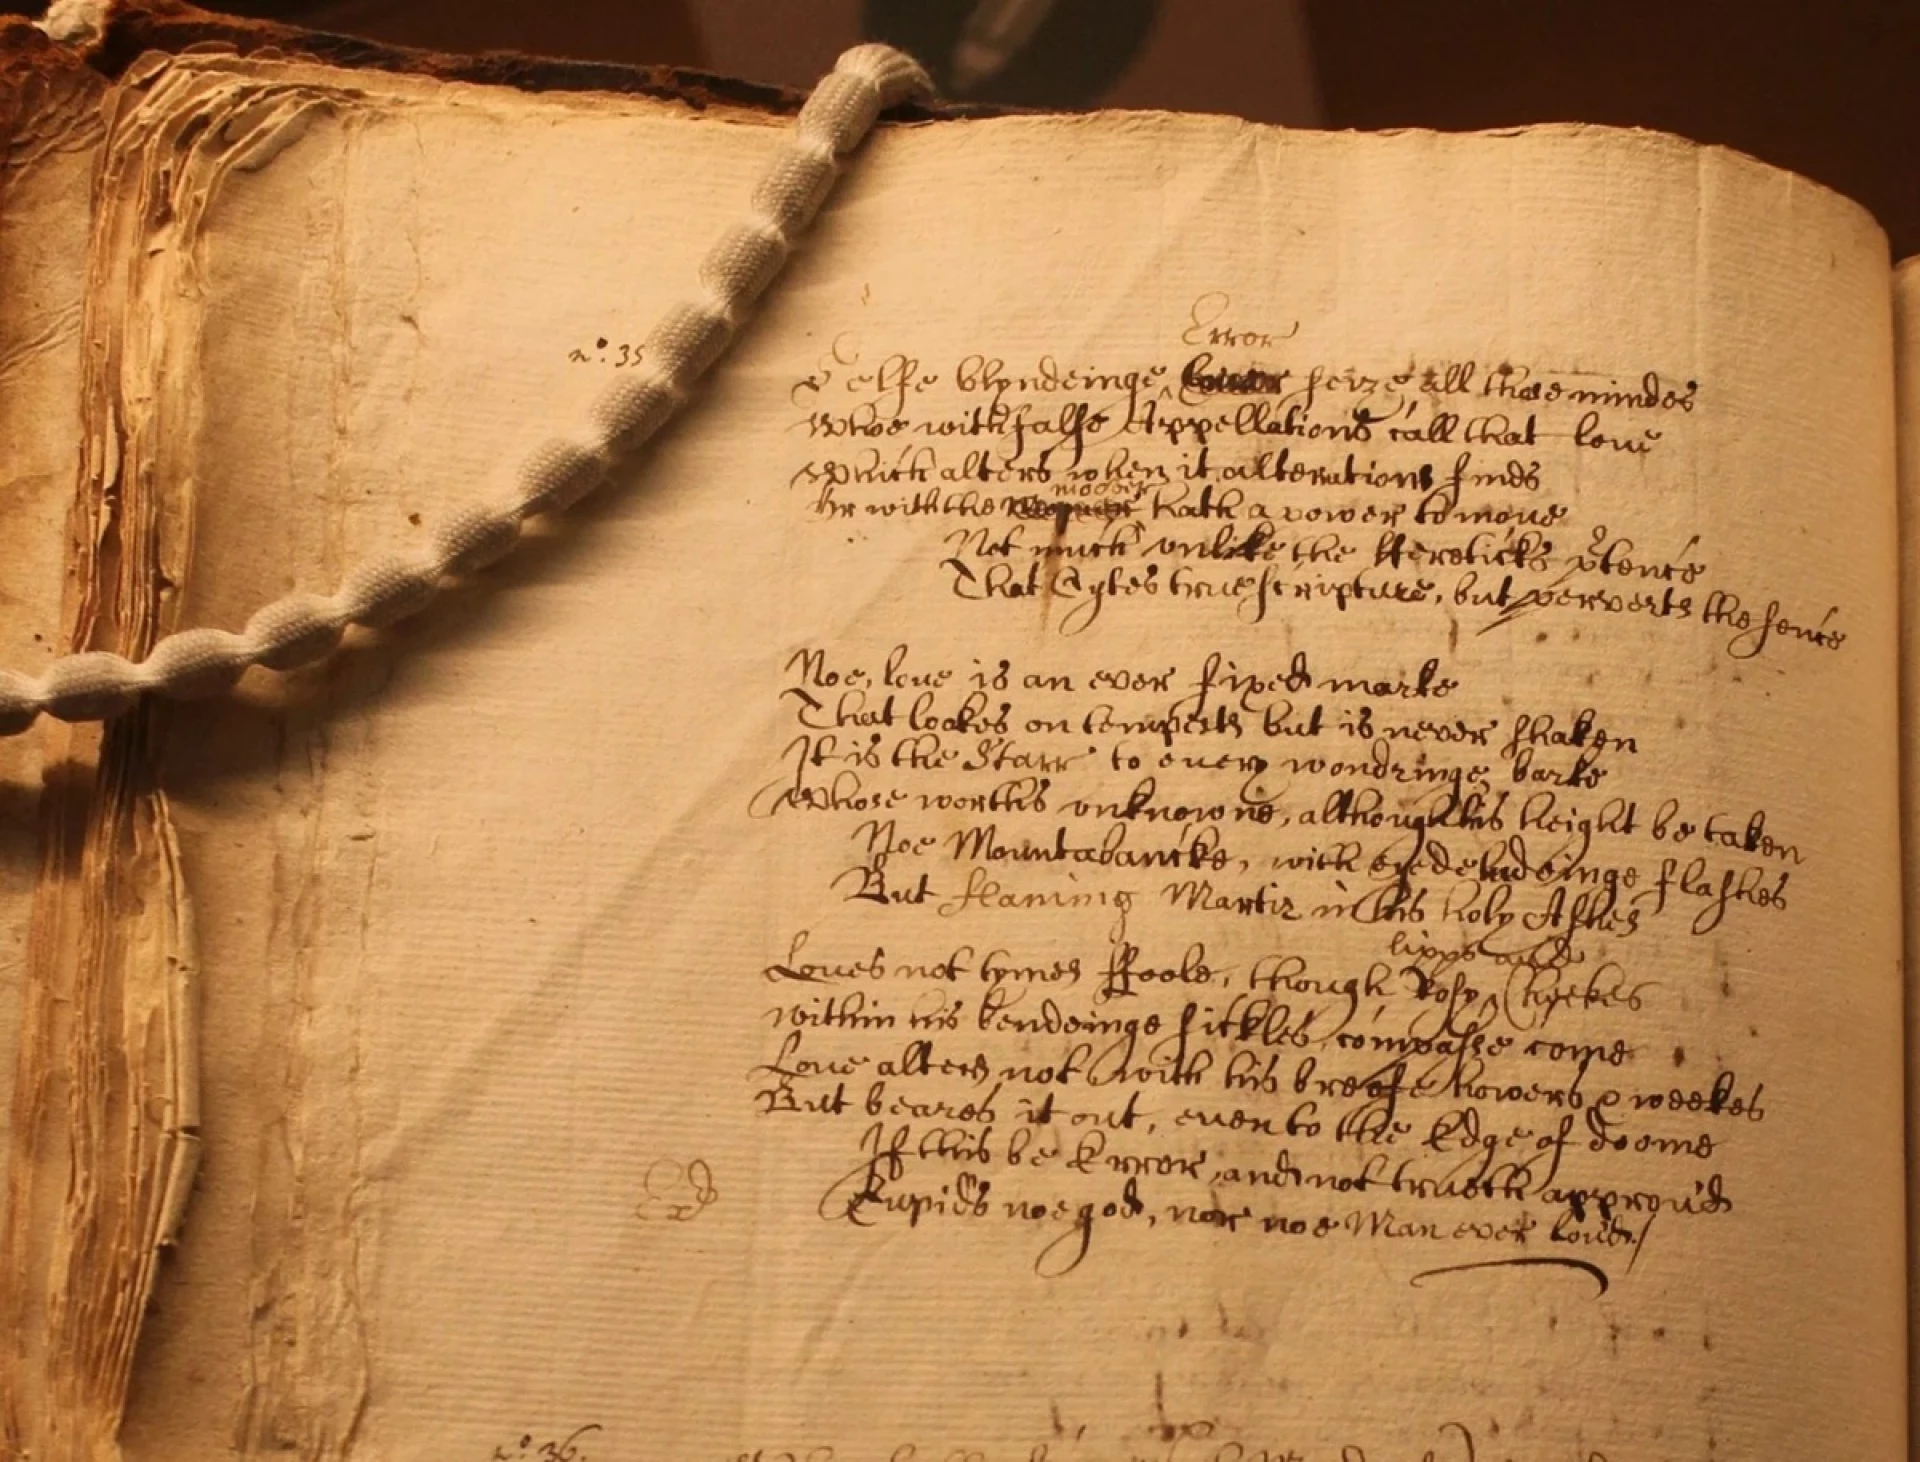 Error
nº. 35
Selfe blyndeinge seize all those mindes
Whoe with false Appellations call that loue
Which alters when it alterations finds
moover
Or with the hath a power to moue
Not much vnlike the Hereticks p̱tence
That Cytes true scripture, but perverts the sence
Noe, loue is an ever fixed marke
That lookes on tempests but is never shaken
It is the Starr to euery wondringe barke
Whose worths vnknowne, although his height be taken
Noe Mountabancke, with eyedeludeinge flashes
But flaming Martir in his holy Ashes
lipps and
Loues not tymes ffoole, though Rosy Cheekes
within his bendeinge sickles compasse come
Loue alters not with his breefe howers & weekes
But beares it out, euen to the Edge of doome
If this be Error, and not trueth approu'd
Cupids noe god, nor noe Man ever lou'd./
nº. 36.